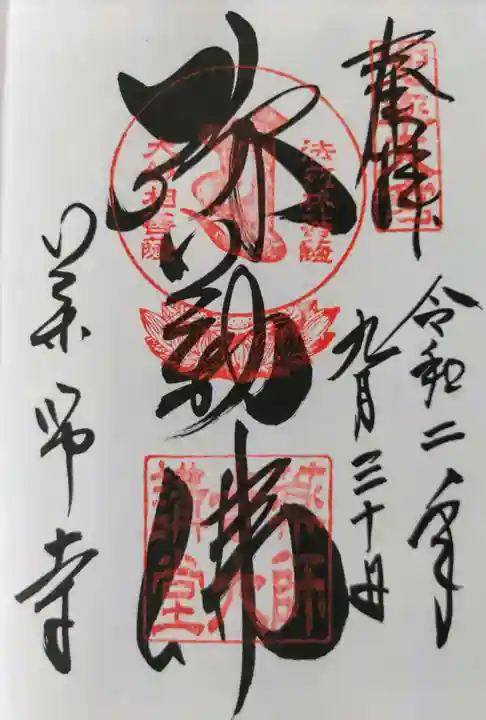 奉拝
令和二年
九月三十日
弥勒佛
法苑林菩薩
大妙相菩薩
薬師寺
大講堂
薬師寺